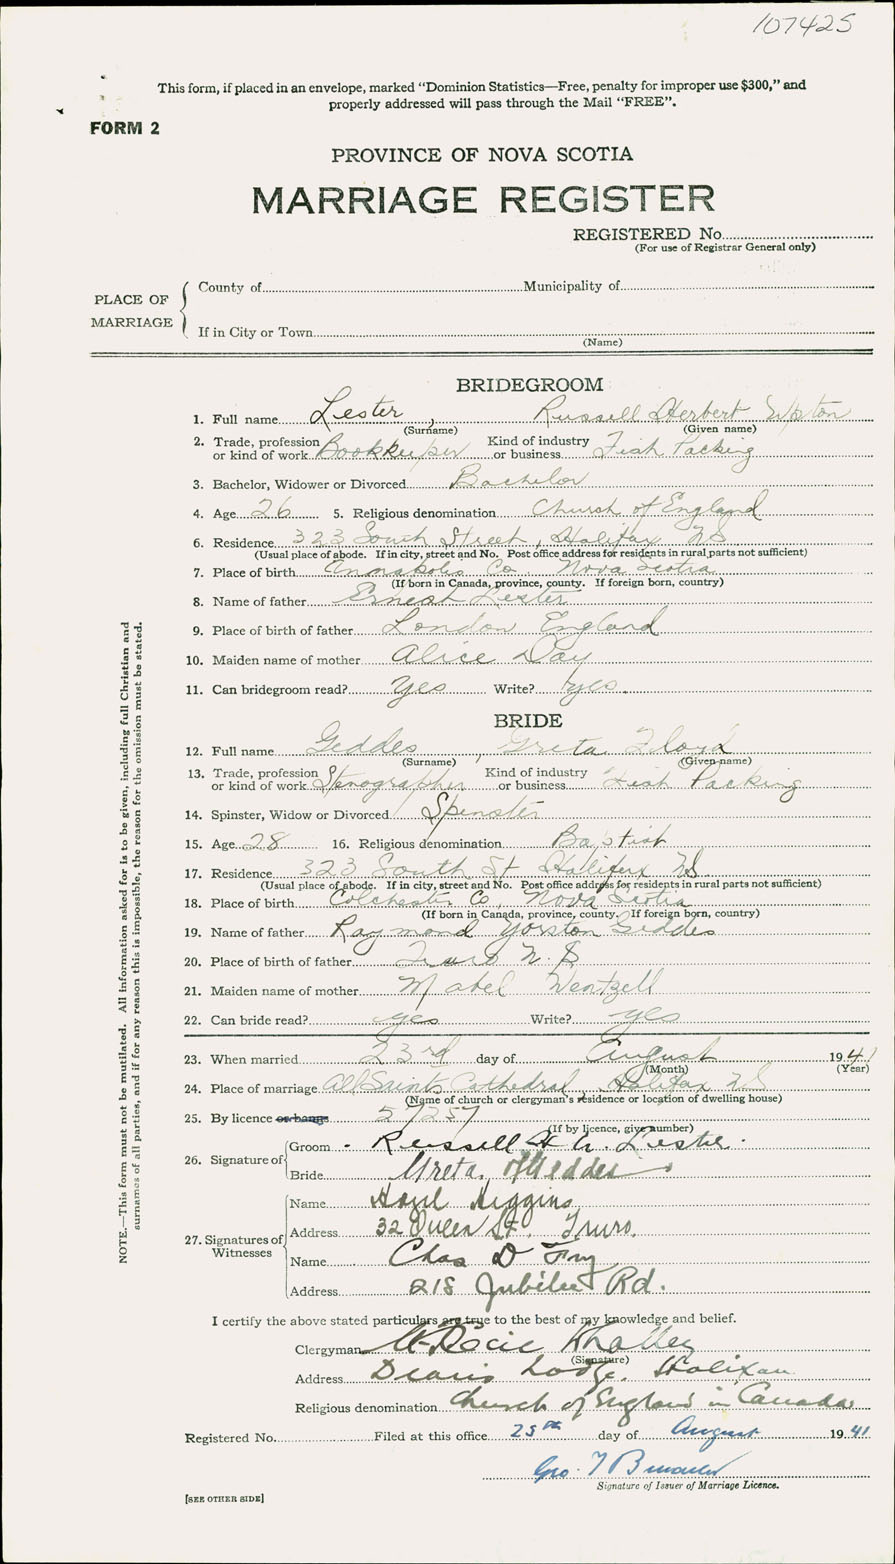 107425
This form, if placed in an envelope, marked “Dominion Statistics—Free, penalty for improper use $300,” and
properly addressed will pass through the Mail “FREE”.
FORM 2
PROVINCE OF NOVA SCOTIA
MARRIAGE REGISTER
REGISTERED No.
(For use of Registrar General only)
PLACE OF MARRIAGE
County of Municipality of
If in City or Town
(Name)
BRIDEGROOM
1. Full name Lester, Russell Herbert Upton
(Surname) (Given name)
2. Trade, profession or kind of work Bookkeeper Kind of industry or business Fish Packing
3. Bachelor, Widower or Divorced Bachelor
4. Age 26 5. Religious denomination Church of England
6. Residence 323 South Street, Halifax NS
(Usual place of abode. If in city, street and No. Post office address for residents in rural parts not sufficient)
7. Place of birth Annapolis Co Nova Scotia
(If born in Canada, province, county. If foreign born, country)
8. Name of father Ernest Lester
9. Place of birth of father London England
10. Maiden name of mother Alice Day
11. Can bridegroom read? Yes Write? yes
BRIDE
12. Full name Geddes, Greta Floyd
(Surname) (Given name)
13. Trade, profession or kind of work Stenographer Kind of industry or business Fish Packing
14. Spinster, Widow or Divorced Spinster
15. Age 28 16. Religious denomination Baptist
17. Residence 323 South St Halifax NS
(Usual place of abode. If in city, street and No. Post office address for residents in rural parts not sufficient)
18. Place of birth Colchester Co, Nova Scotia
(If born in Canada, province, county. If foreign born, country)
19. Name of father Raymond Yorston Geddes
20. Place of birth of father Truro N.S
21. Maiden name of mother Mabel Wentzell
22. Can bride read? yes Write? yes
23. When married 23rd day of August 1941
(Month) (Year)
24. Place of marriage All Saints Cathedral, Halifax NS
(Name of church or clergyman's residence or location of dwelling house)
25. By licence or banns 57257
(If by licence, give number)
26. Signature of Groom Russell H. U. Lester
Bride Greta Geddes
27. Signatures of Witnesses Name Higgins
Address 32 Queen St. Truro.
Name Chas D Fry
Address 218 Jubilee Rd.
I certify the above stated particulars are true to the best of my knowledge and belief.
Clergyman Whalley
(Signature)
Address Lodge, Halifax
Religious denomination Church of England in Canada
Registered No. Filed at this office 25th day of August 1941
Geo. T
Signature of Issuer of Marriage Licence.
[SEE OTHER SIDE]
NOTE.—This form must not be mutilated. All information asked for is to be given, including full Christian and
surnames of all parties, and if for any reason this is impossible, the reason for the omission must be stated.